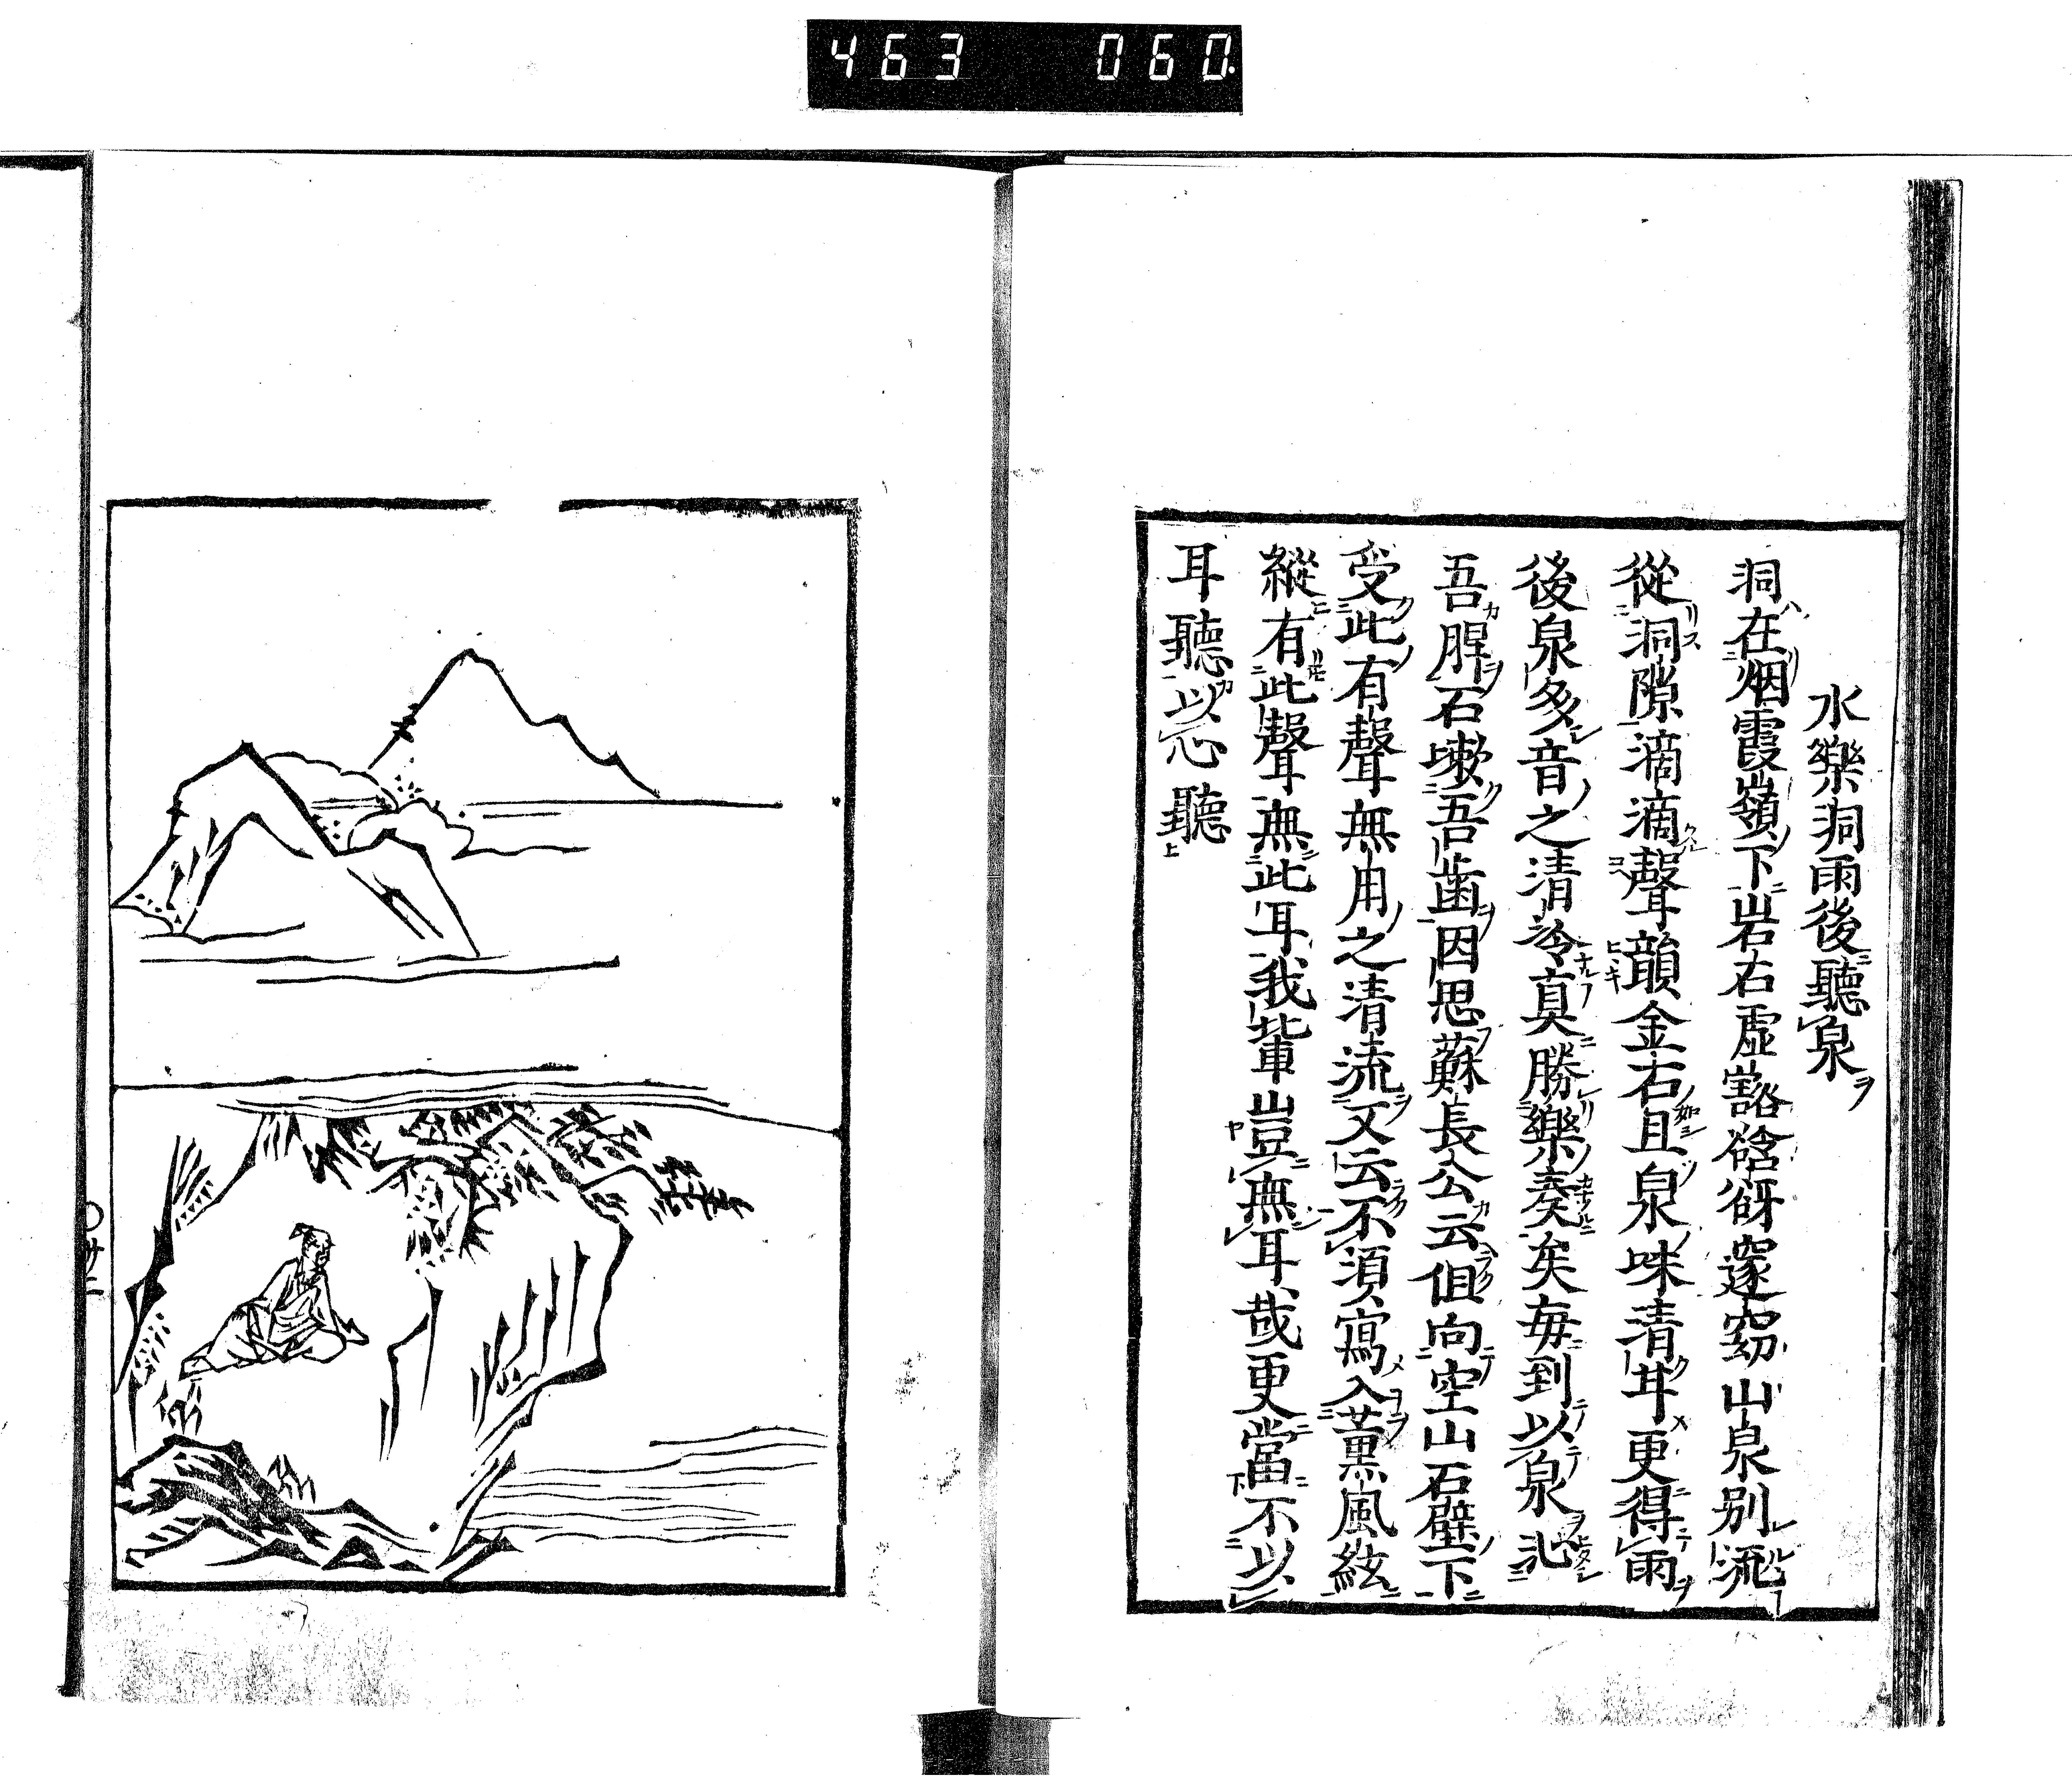 463 060
水樂洞雨後聽泉
洞在烟霞嶺下岩石虛豁谽谺邃窈山泉別流
從洞隙滴滴聲韻金石且泉味清甘更得雨
後泉多音之清泠真勝樂奏矣每到以泉沁
吾脾石嗽吾齒因思蘇長公云但向空山石壁下
受此有聲無用之清流又云不須寫入薰風絃
縱有此聲無此耳我輩豈無耳哉更當不以
耳聽以心聽
〇廿二